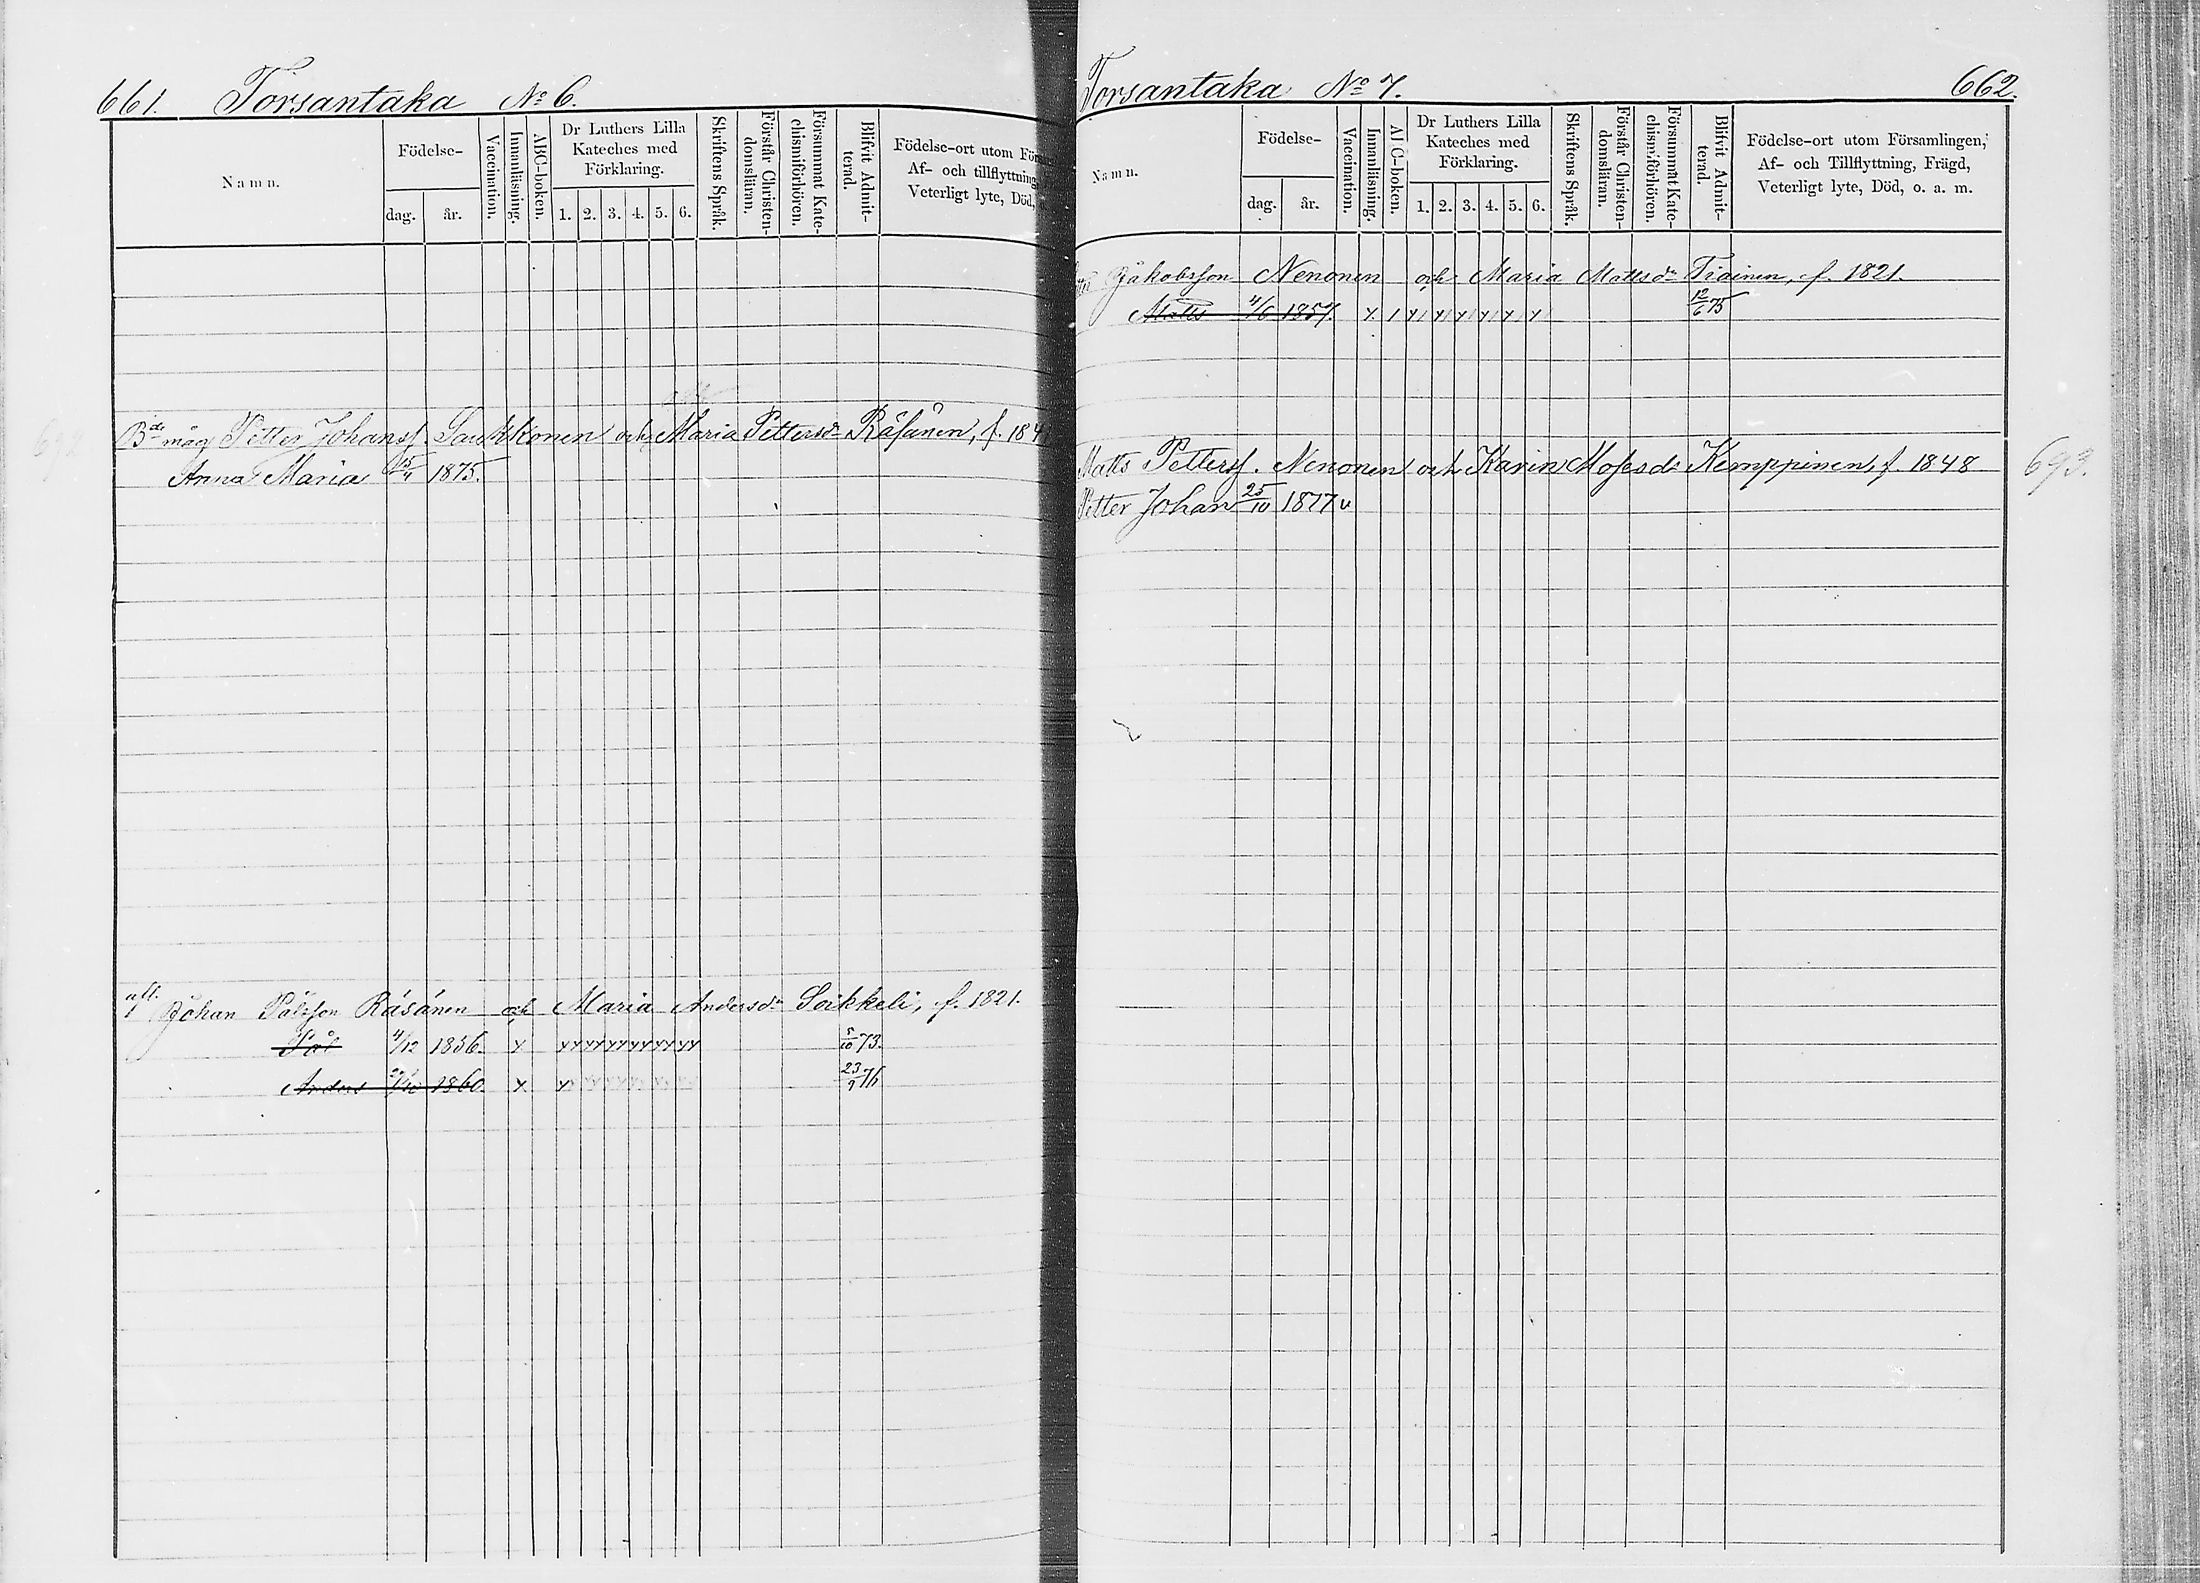 661. Torsantaka No 6.
Namn.
Födelse-
dag.
år.
Vaccination.
Innanläsning.
ABC-boken.
Dr Luthers Lilla
Kateches med
Förklaring.
1. 2. 3. 4. 5. 6.
Skriftens Språk.
Förstår Christen-
domsläran.
Försummat Kate-
chismiförhören.
Blifvit Admit-
terad.
Födelse-ort utom För
Af- och tillflyttning
Veterligt lyte, Död,
Bde måg Petter Johansf. Saukkonen och Maria Pettersdr Räsänen, f. 184
Anna Maria 15/4 1875.
afl. Johan Pålsson Räsänen och Maria Andersdr Soikkeli, f. 1821.
Pål 4/12 1856. x xxxxxxxxxxxx 5/10 73.
Anders 1860. x x 23/9 76
Torsantaka No 7. 662.
Namn.
Födelse-
dag.
år.
Vaccination.
Innanläsning.
ABC-boken.
Dr Luthers Lilla
Kateches med
Förklaring.
1. 2. 3. 4. 5. 6.
Skriftens Språk.
Förstår Christen-
domsläran.
Försummat Kate-
chismiförhören.
Blifvit Admit-
terad.
Födelse-ort utom Församlingen,
Af- och Tillflyttning, Frägd,
Veterligt lyte, Död, o. a. m.
Jakobsson Nenonen och Maria Mattsdr Tiainen, f. 1821.
Matts 4/6 1857. 12/6 75
Matts Pettersf. Nenonen och Karin Mosesdr Kemppinen, f. 1848 693.
Petter Johan 25/10 1877 v